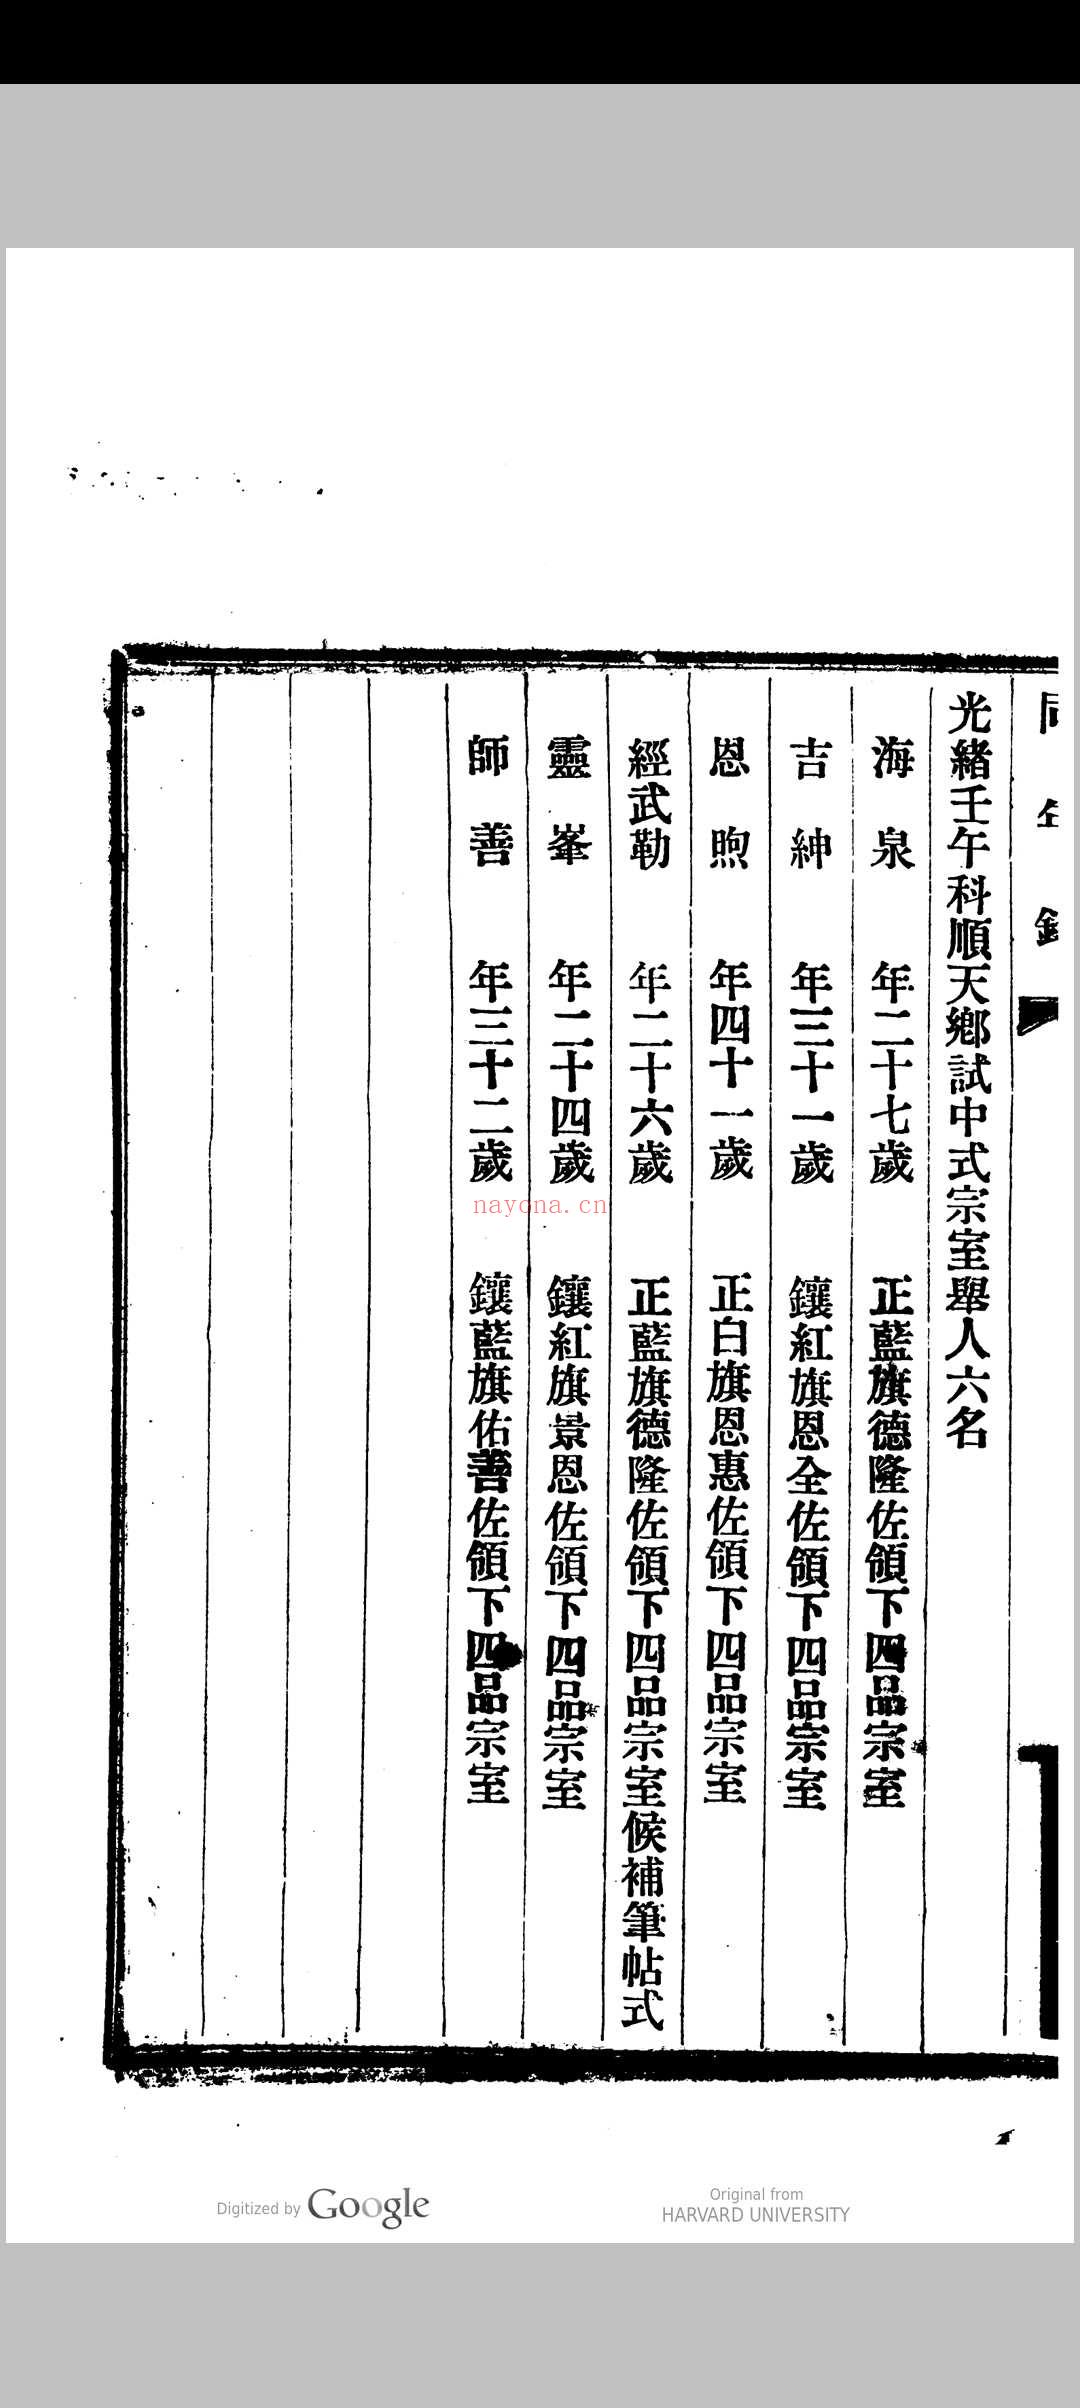 光緒壬午科順天鄉試中式宗室舉人六名
海泉 年二十七歲 正藍旗德隆佐領下四品宗室
吉紳 年三十一歲 鑲紅旗恩全佐領下四品宗室
恩煦 年四十一歲 正白旗恩惠佐領下四品宗室
經武勒 年二十六歲 正藍旗德隆佐領下四品宗室候補筆帖式
靈峯 年二十四歲 鑲紅旗景恩佐領下四品宗室
師善 年三十二歲 鑲藍旗佑善佐領下四品宗室
nayona.cn
Digitized by Google
Original from
HARVARD UNIVERSITY